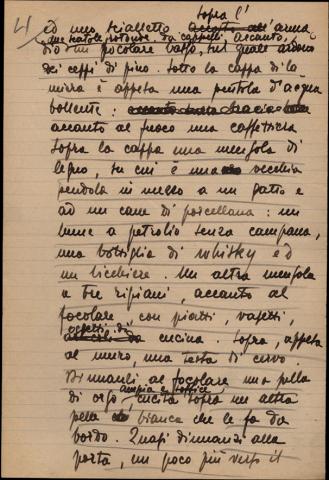 4/
sopra l'
ed uno scialletto accanto all'anna
due scatole rotonde, da cappelli. Accanto,
di un focolare basso, sul quale ardono
dei ceppi di pino. Sotto la cappa di la
miera è appesa una pentola d'acqua
bollente:
accanto al fuoco una caffettiera
sopra la cappa una mensola di
legno, su cui è una vecchia
pendola in mezzo a un gatto e
ad un cane di porcellana: un
lume a petrolio senza campana,
una bottiglia di whisky ed
un bicchiere. Un altra mensola
a tre ripiani, accanto al
focolare, con piatti, vasetti,
oggetti di
cucina. Sopra, appesa
al muro, una testa di cervo.
Dinanzi al focolare una pelle
ampia e soffice
di orso, cucita sopra un altra
pelle bianca che le fa da
bordo. Quasi dinnanzi alla
porta, un poco più verso il